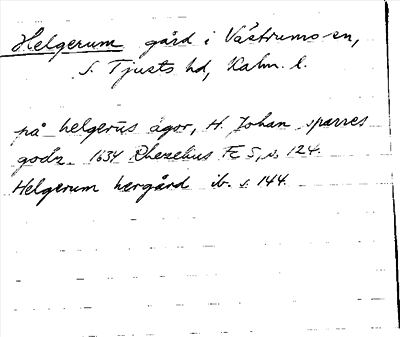 Helgerum gård i Västrums sn,
S. Tjusts hd, Kalm. l.
på helgerūs ägor, H. Johan sparres
godz 1634 Rhezelius Fc 5, s. 124.
Helgerum herrgård ib. s. 144.